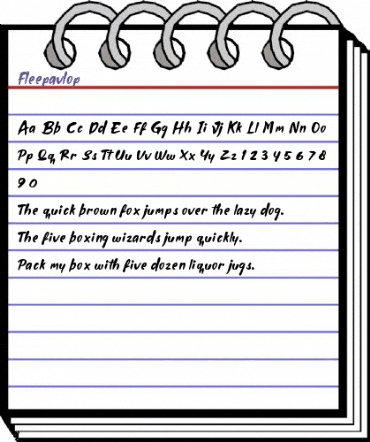 Fleepavlop
Aa Bb Cc Dd Ee Ff Gg Hh Ii Jj Kk Ll Mm Nn Oo
Pp Qq Rr Ss Tt Uu Vv Ww Xx Yy Zz 1 2 3 4 5 6 7 8
9 0
The quick brown fox jumps over the lazy dog.
The five boxing wizards jump quickly.
Pack my box with five dozen liquor jugs.